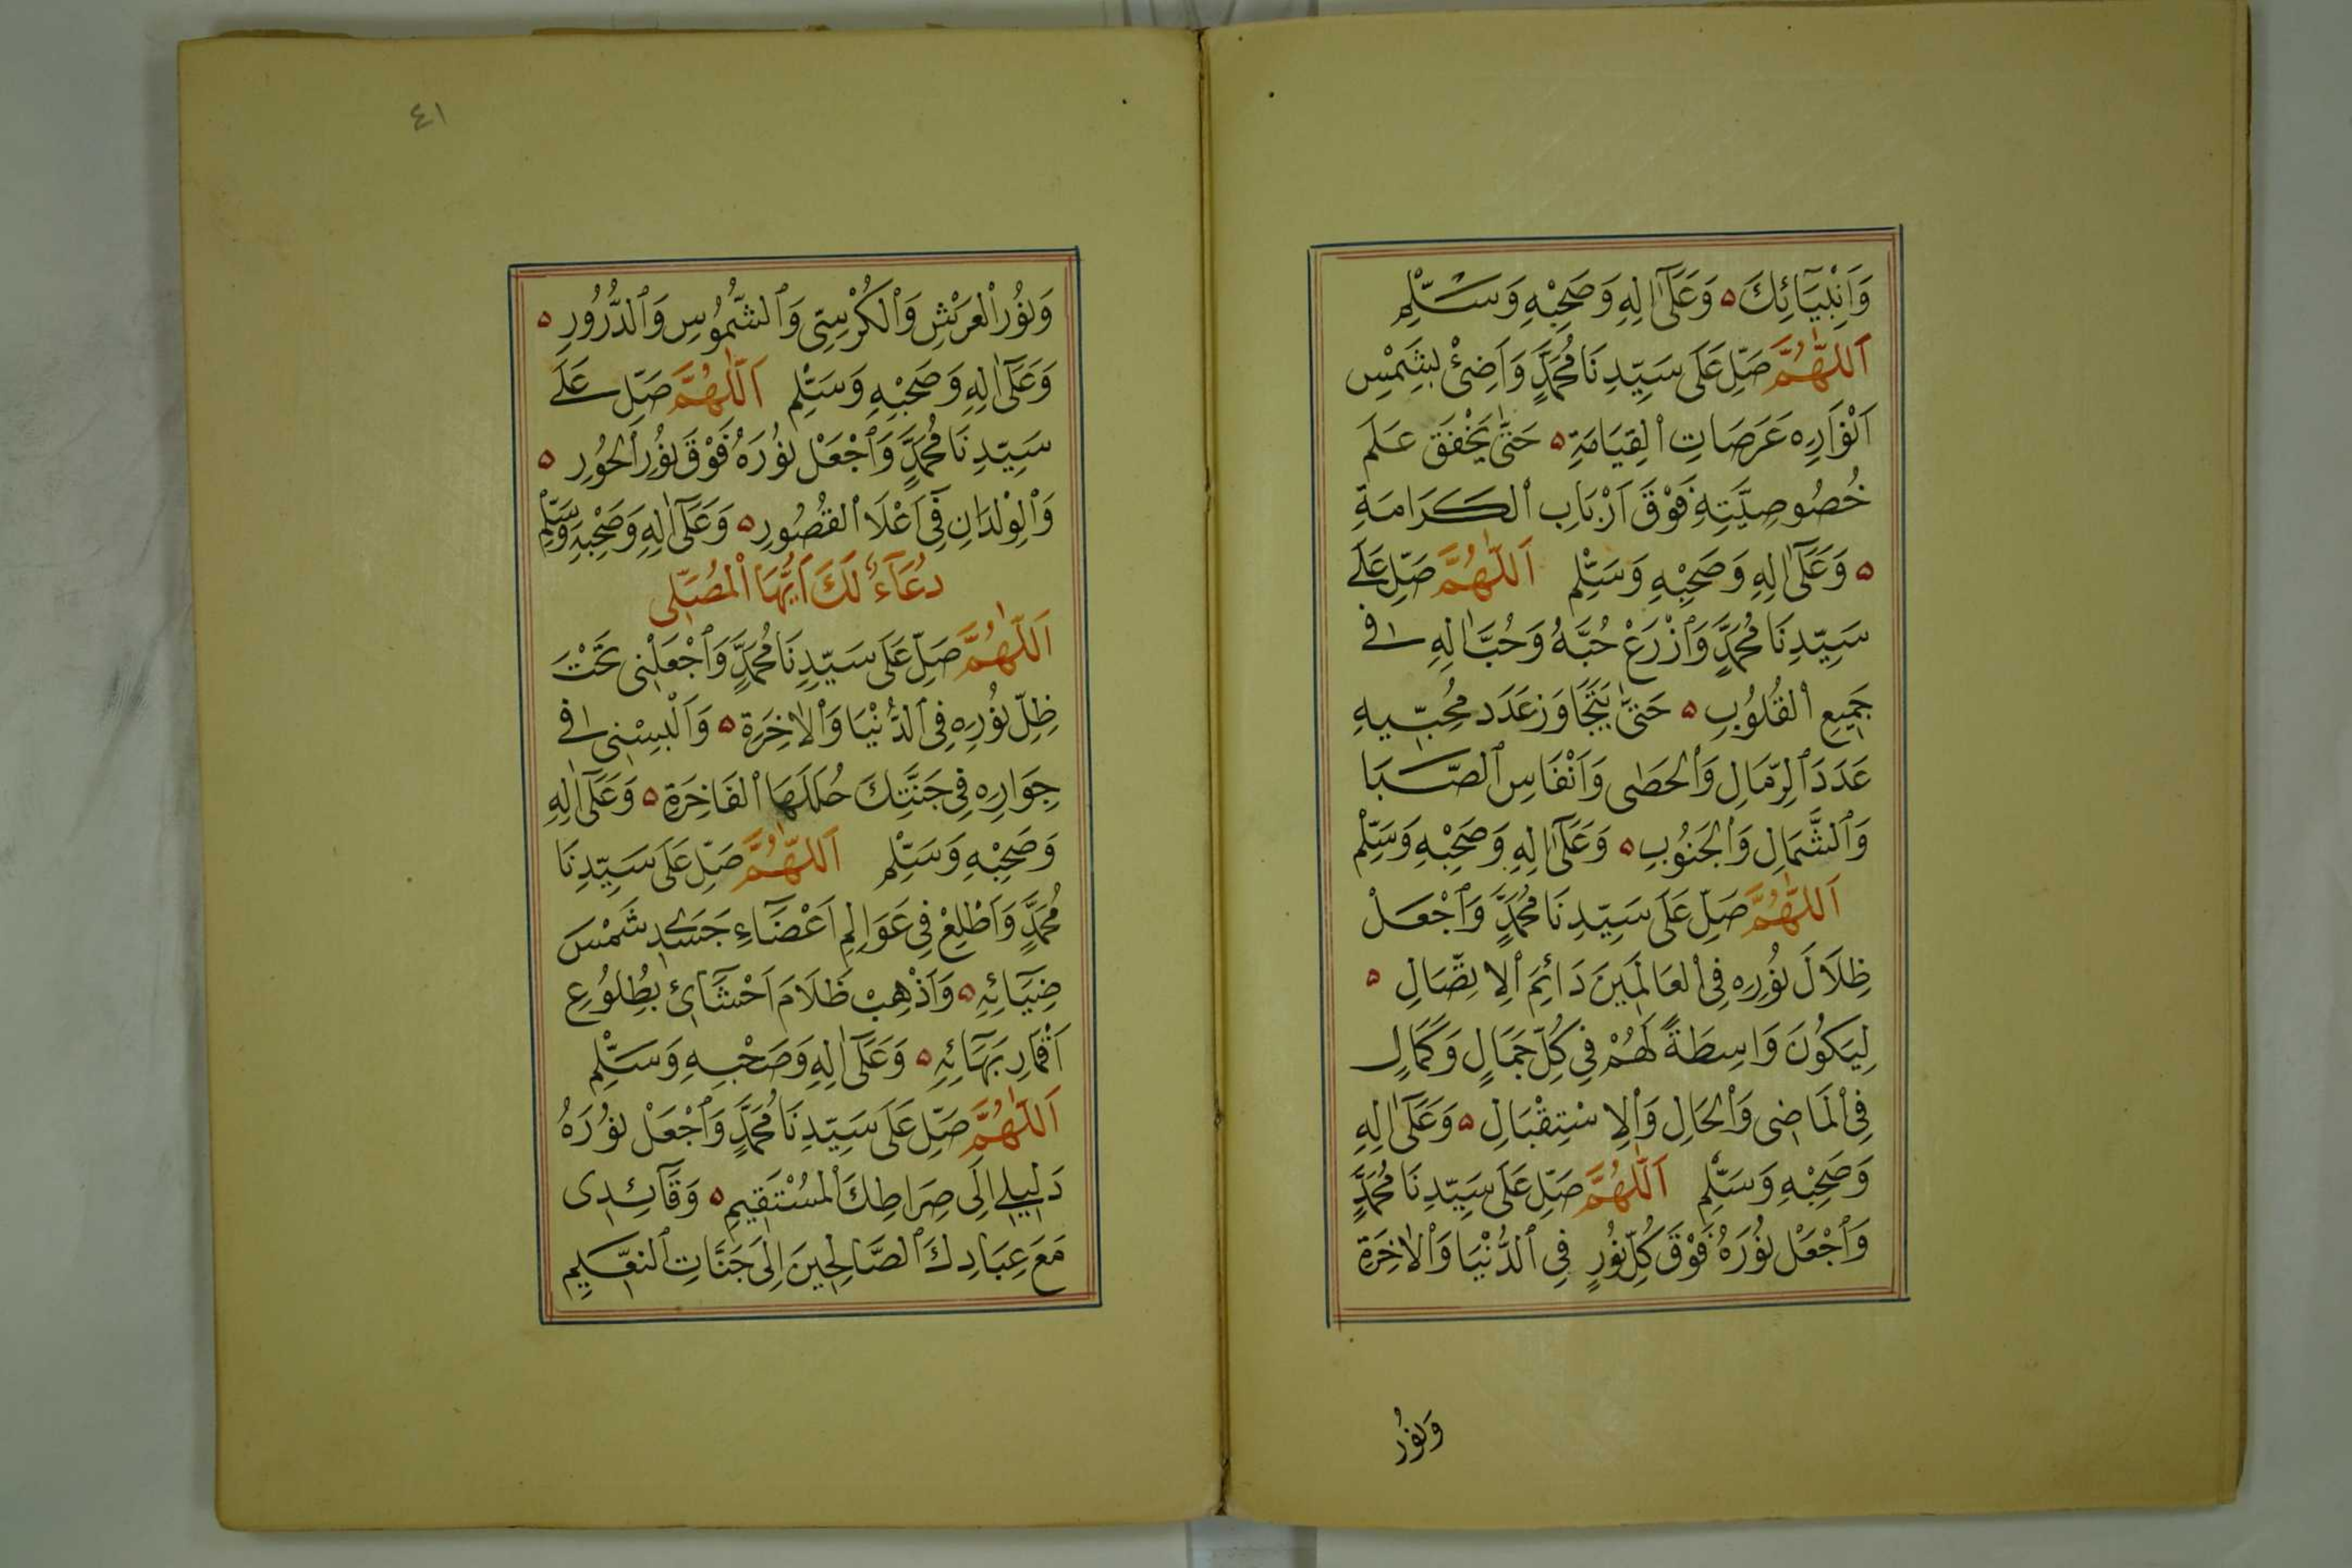 وَاَنْبِيَآئِكَ ۵ وَعَلَىٰٓ اٰلِهِ وَصَحْبِهِ وَسَلِّمْ
اَللّٰهُمَّ صَلِّ عَلَى سَيِّدِنَا مُحَمَّدٍ وَاَضِئْ بِشَمْسِ
اَنْوَارِهِ عَرَصَاتِ الْقِيَامَةِ ۵ حَتّٰى يَخْفَقَ عَلَم
خُصُوصِيَّتِهِ فَوْقَ اَرْبَابِ الْكَرَامَةِ
۵ وَعَلَىٰٓ اٰلِهِ وَصَحْبِهِ وَسَلِّمْ اَللّٰهُمَّ صَلِّ عَلَى
سَيِّدِنَا مُحَمَّدٍ وَازْرَعْ حُبَّهُ وَحُبَّ اٰلِهِ فِى
جَمِيعِ الْقُلُوبِ ۵ حَتّٰى يَتَجَاوَزَ عَدَد مُحِبِّيهِ
عَدَدَ الرِّمَالِ وَالْحَصٰى وَاَنْفَاسِ الصَّبَا
وَالشَّمَالِ وَالْجَنُوبِ ۵ وَعَلَىٰٓ اٰلِهِ وَصَحْبِهِ وَسَلِّمْ
اَللّٰهُمَّ صَلِّ عَلَى سَيِّدِنَا مُحَمَّدٍ وَاجْعَلْ
ظِلَالَ نُورِهِ فِى الْعَالَمِينَ دَائِمَ الِاتِّصَالِ ۵
لِيَكُونَ وَاسِطَةً لَهُمْ فِى كُلِّ جَمَالٍ وَكَمَالٍ
فِى الْمَاضِى وَالْحَالِ وَالِاسْتِقْبَالِ ۵ وَعَلَىٰٓ اٰلِهِ
وَصَحْبِهِ وَسَلِّمْ اَللّٰهُمَّ صَلِّ عَلَى سَيِّدِنَا مُحَمَّدٍ
وَاجْعَلْ نُورَهُ فَوْقَ كُلِّ نُورٍ فِى الدُّنْيَا وَالْاٰخِرَةِ
وَنُورُ
٤١
وَنُورُ الْعَرْشِ وَالْكُرْسِىِّ وَالشُّمُوسِ وَالدُّرُورِ ۵
وَعَلَىٰٓ اٰلِهِ وَصَحْبِهِ وَسَلِّمْ اَللّٰهُمَّ صَلِّ عَلَى
سَيِّدِنَا مُحَمَّدٍ وَاجْعَلْ نُورَهُ فَوْقَ نُورِ الْحُورِ ۵
وَالْوِلْدَانِ فِىٓ اَعْلَا الْقُصُورِ ۵ وَعَلَىٰٓ اٰلِهِ وَصَحْبِهِ وَسَلِّمْ
دُعَآءٌ لَكَ اَيُّهَا الْمُصَلِّى
اَللّٰهُمَّ صَلِّ عَلَى سَيِّدِنَا مُحَمَّدٍ وَاجْعَلْنِى تَحْتَ
ظِلِّ نُورِهِ فِى الدُّنْيَا وَالْاٰخِرَةِ ۵ وَاَلْبِسْنِى فِى
جِوَارِهِ فِى جَنَّتِكَ حُلَلَهَا الْفَاخِرَةِ ۵ وَعَلَىٰٓ اٰلِهِ
وَصَحْبِهِ وَسَلِّمْ اَللّٰهُمَّ صَلِّ عَلَى سَيِّدِنَا
مُحَمَّدٍ وَاَطْلِعْ فِى عَوَالِمِ اَعْضَآءِ جَسَدِى شَمْسَ
ضِيَآئِهِ ۵ وَاَذْهِبْ ظَلَامَ اَحْشَآئِ بِطُلُوعِ
اَقْمَارِ بَهَآئِهِ ۵ وَعَلَىٰٓ اٰلِهِ وَصَحْبِهِ وَسَلِّمْ
اَللّٰهُمَّ صَلِّ عَلَى سَيِّدِنَا مُحَمَّدٍ وَاجْعَلْ نُورَهُ
دَلِيلِى اِلَى صِرَاطِكَ الْمُسْتَقِيمِ ۵ وَقَآئِدِى
مَعَ عِبَادِكَ الصَّالِحِينَ اِلَى جَنَّاتِ النَّعِيمِ